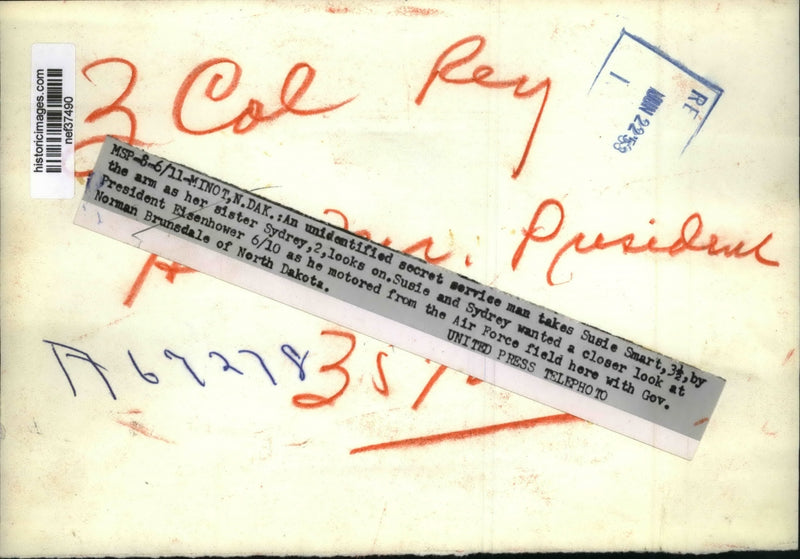 historicimages.com
nef37490
3 Col Rey
RE
JUN 22 53
1
MSP-8-6/11-MINOT,N.DAK.:An unidentified secret service man takes Susie Smart,3½,by
the arm as her sister Sydrey,2,looks on.Susie and Sydrey wanted a closer look at
President Eisenhower 6/10 as he motored from the Air Force field here with Gov.
Norman Brunsdale of North Dakota.
UNITED PRESS TELEPHOTO
President
A67278
35